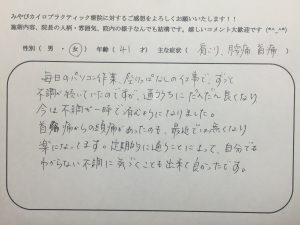 みやびカイロプラクティック療院に対するご感想をよろしくお願いいたします!!
施術内容、院長の人柄・雰囲気、院内の様子なんでも結構です。嬉しいコメント大歓迎です (*^_^*)
性別( 男 ・ 女 ) 年齢( 41 才) 主な症状( 肩こり、腰痛 首痛 )
毎日のパソコン作業、座りっぱなしの仕事で、ずっと
不調が続いていたのですが、通ううちにだんだん良くなり
今は不調が一時で済むようになりました。
首痛からの頭痛があったのも、最近では無くなり
楽になってます。定期的に通うことによって、自分でも
わからない不調に気づくことも出来て良かったです。